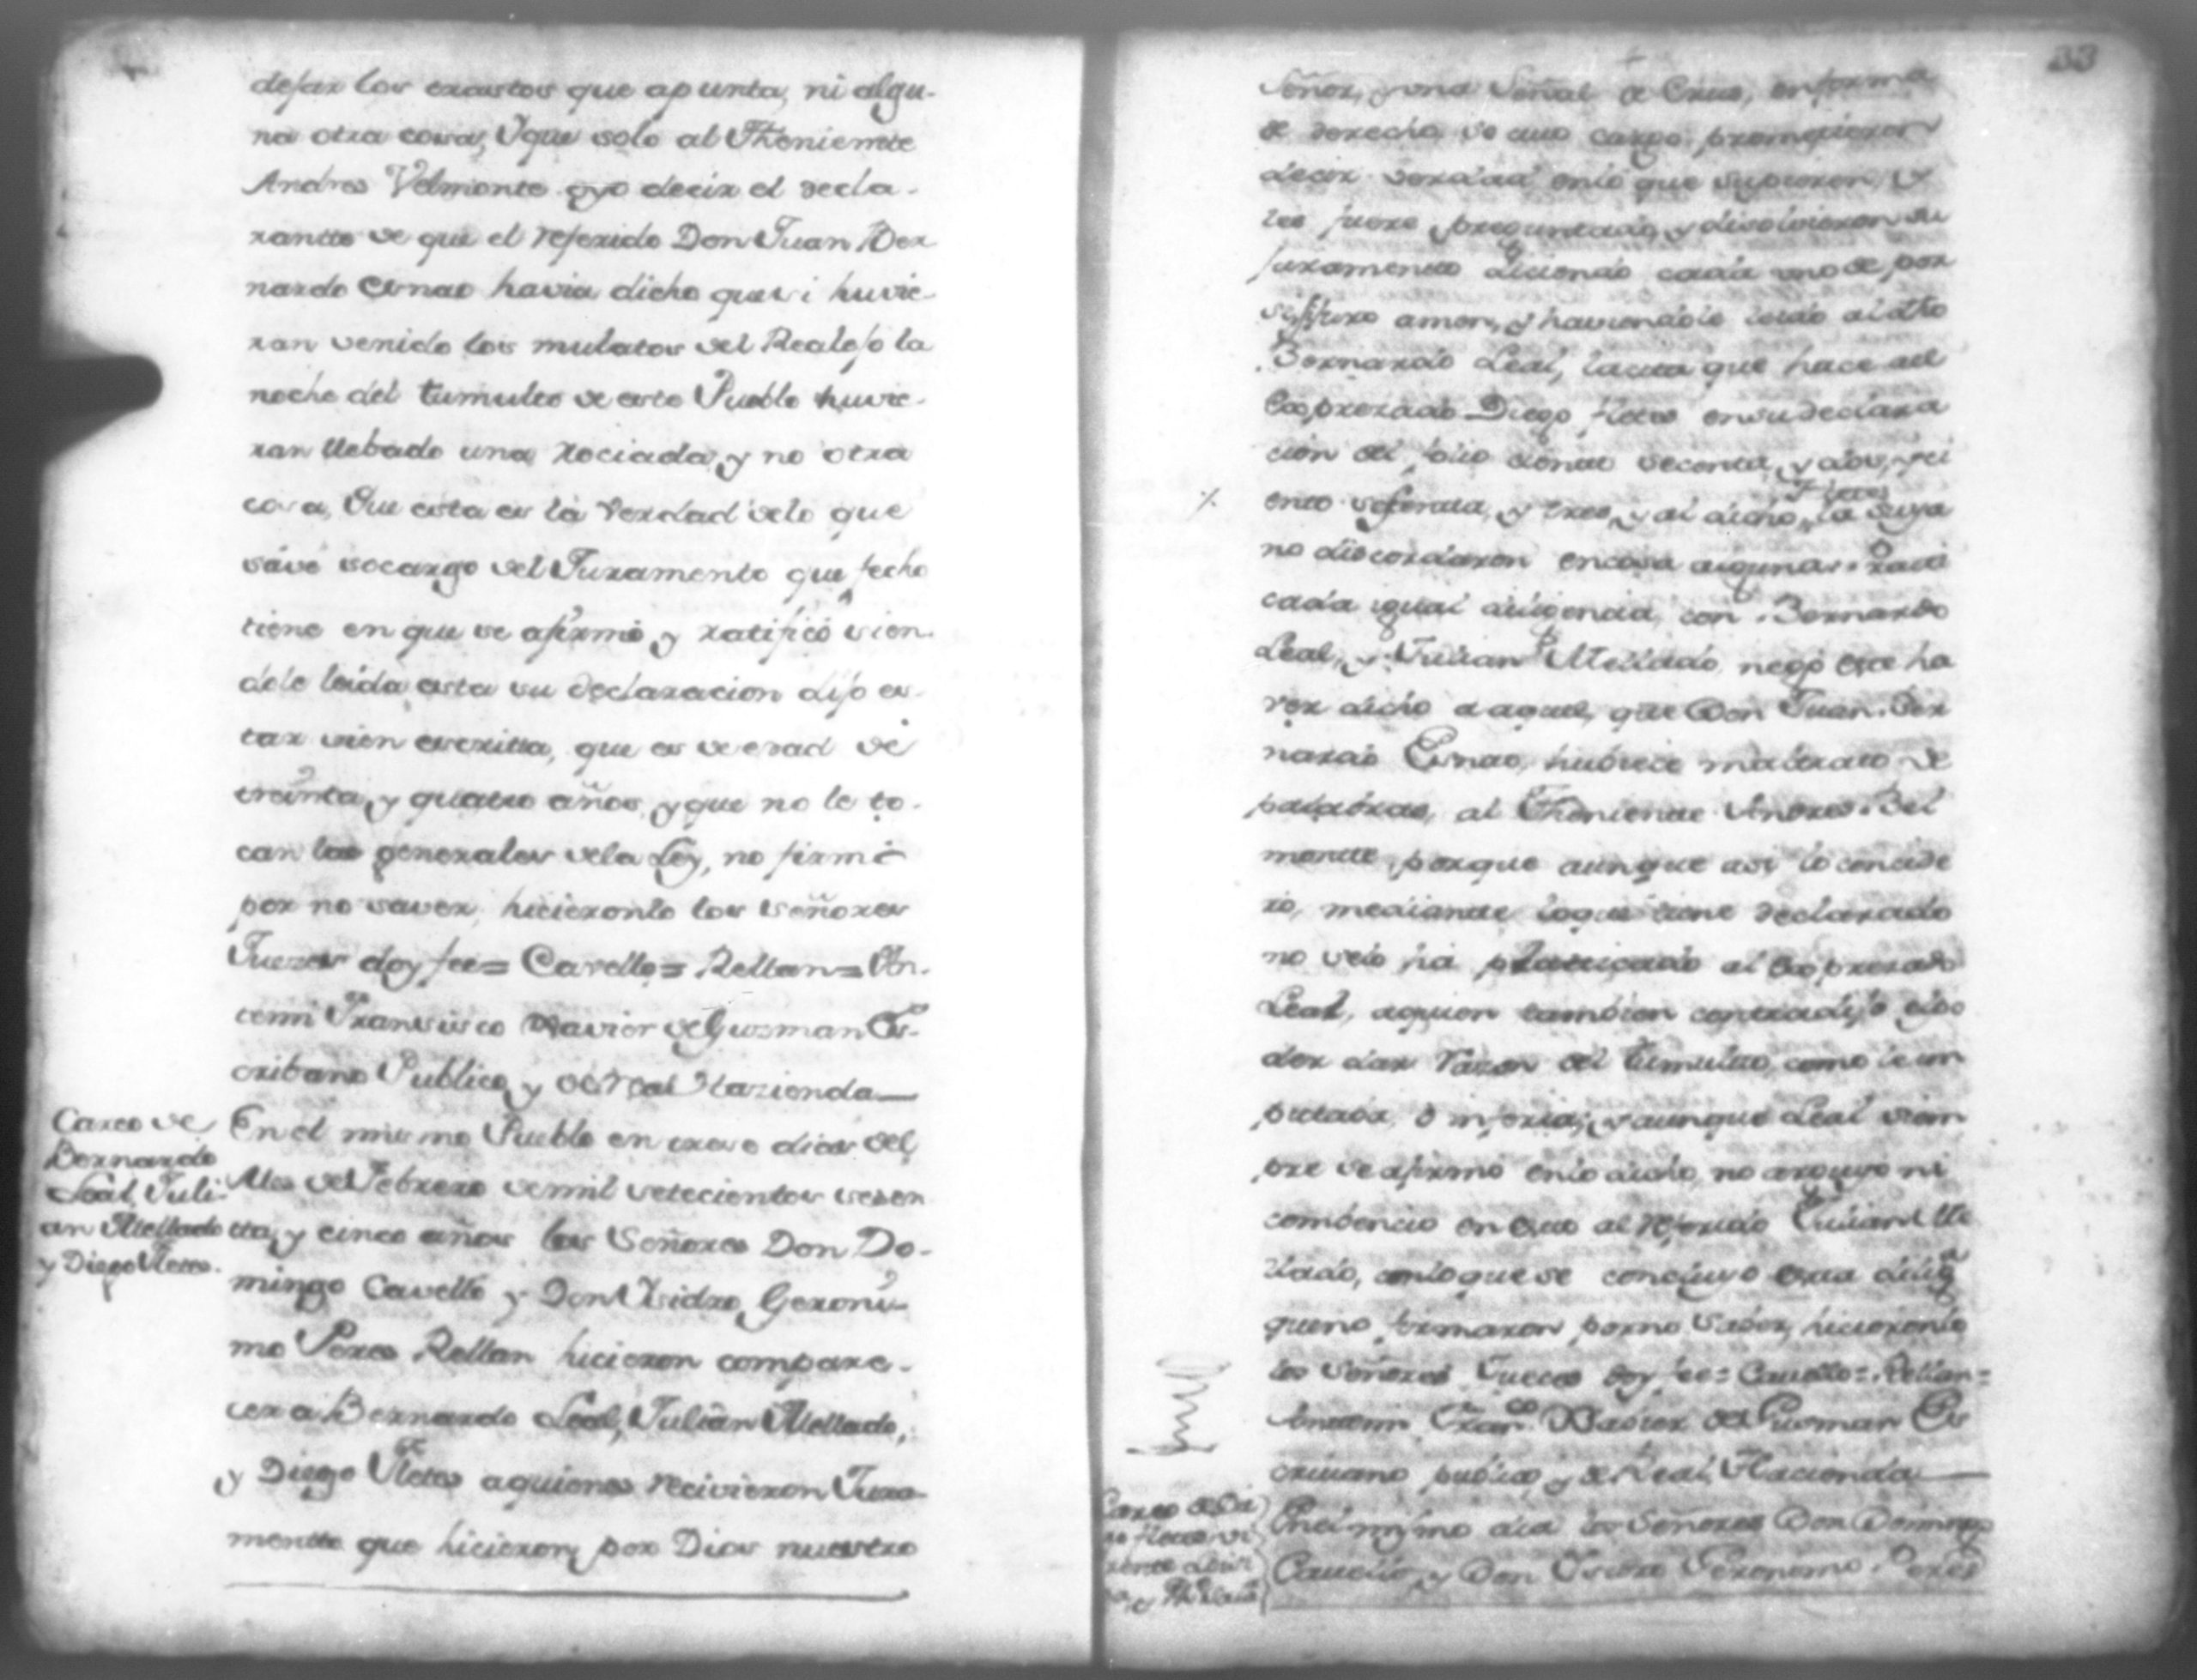 defar los exastos que apunta, ni algu-
na otra cosa, Y que solo al Theniente
Andres Velmonte oyo decir el decla-
rantte de que el referido Don Juan Ber
nardo Esnao havia dicho que si huvie-
ran venido los mulatos del Realejo la
noche del tumulto de este Pueblo huvie-
ran llebado una Rociada, y no otra
cosa, Que esta es la Verdad de lo que
save socargo del Juramento que fecho
tiene en que se afirmó, y ratificó sien-
dole leida esta su declaracion dijo es-
tar vien escritta, que es de edad de
treinta, y quatro años, y que no le to-
can las generales de la Ley, no firmó
por no saver, hicieronlo los señores
Juezes doy fee= Cavello= Rellan= An-
temi Francisco Xavier de Guzman Es-
cribano Publico, y de Real Hazienda—
Careo de
Bernardo
Leal, Juli-
an Mellado
y Diego Fletes.
En el mismo Pueblo en trese dias del
Mes de Febrero de mil setecientos sesen
tta, y cinco años los Señores Don Do-
mingo Cavello y Don Ysidro Geroni-
mo Peres Rellan hicieron compare-
cer a Bernardo Leal, Julian Mellado,
y Diego Fletes a quienes recivieron Jura-
mentto que hicieron por Dios nuestro
33
Señor, y una Señal de Cruz, en forma
de derecho so cuio cargo prometieron
decir verdad en lo que supieren, y
les fuere preguntado, y disolvieron su
juramento diciendo cada uno de por
si, juro amen, y haviendole leido al dho
Bernardo Leal, la cita que hace del
Expresado Diego Fletes en su declara
cion del folio donde se
ento sesenta, y tres, y al dicho Fletes la suya
no discordaron en cosa alguna=
cada igual diligencia, con Bernardo
Leal, y Julian Mellado, negó este ha
ver dicho a aquel, que Don Juan Ber
nardo Esnao, hubiese maltrato de
palabras, al Theniente Andres Bel
montte, porque aunque asi lo concide
ró, mediante lo que tiene declarado
no selo há platicado al Expresado
Leal, a quien tambien contradijo
der dar razon del tumulto, como le im
putaba, ó inferia; y aunque Leal siem
pre se afirmó en lo dicho, no arguyo ni
combencio en esto al referido Julian Me
llado, con lo que se concluyo esta dilig.a
que no firmaron por no saber, hicieronlo
los Señores Jueces doy fee= Cavello=. Rellan=
Antemi Fran.co Xavier de Gusman Es
crivano publico, y de Real Hacienda—
Careo de Die
go Fletes
En el mismo dia los Señores Don Domingo
Cavello, y Don Ysidro Geronimo Peres